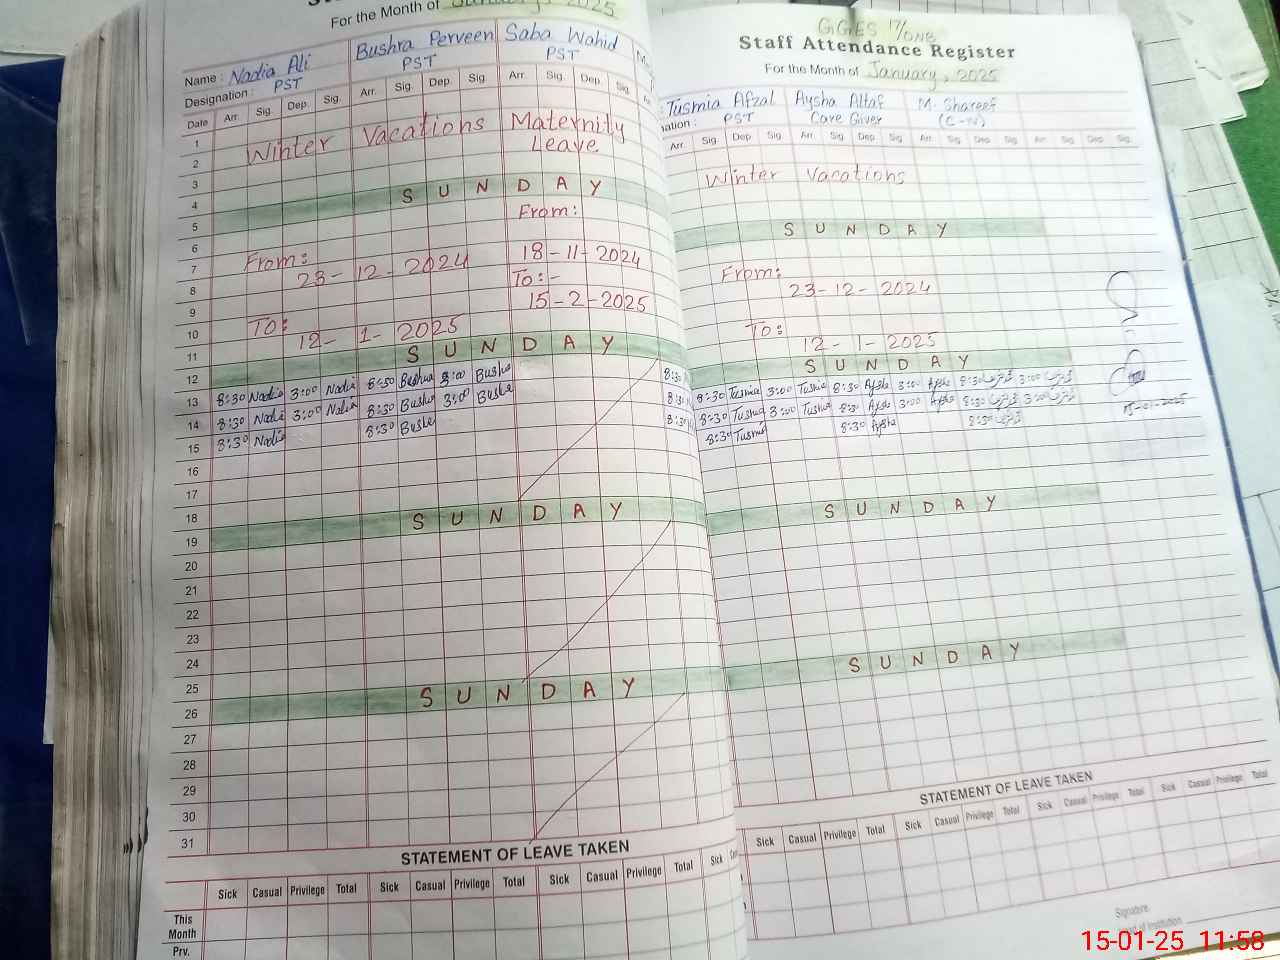 For the Month of January, 2025
Name : Nadia Ali Bushra Perveen Saba Wahid
Designation : PST PST PST
Date Arr. Sig. Dep. Sig. Arr. Sig. Dep. Sig. Arr. Sig. Dep. Sig.
1 Winter Vacations Maternity
2 Leave
3
4 SUNDAY
5 From:
6
7 From: 18-11-2024
8 23-12-2024 To:-
9 15-2-2025
10 To:
11 12-1-2025
12 SUNDAY
13 8:30 Nadia 3:00 Nadia 8:30 Bushra 3:00 Bushra
14 8:30 Nadia 3:00 Nadia 8:30 Bushra 3:00 Bushra
15 8:30 Nadia 8:30 Bushra
16
17
18 SUNDAY
19
20
21
22
23
24
25 SUNDAY
26
27
28
29
30
31
STATEMENT OF LEAVE TAKEN
Sick Casual Privilege Total Sick Casual Privilege Total Sick Casual Privilege Total Sick
This Month
Prv.
GGES 17/ONB
Staff Attendance Register
For the Month of January, 2025
Tusmia Afzal Aysha Altaf M. Shareef
PST Care Giver (C-IV)
Arr. Sig. Dep. Sig. Arr. Sig. Dep. Sig. Arr. Sig. Dep. Sig. Arr. Sig. Dep. Sig.
Winter Vacations
SUNDAY
From:
23-12-2024
To:
12-1-2025
SUNDAY
8:30 Tusmia 3:00 Tusmia 8:30 Aysha 3:00 Aysha 8:30 شریف 3:00 شریف
8:30 Tusmia 3:00 Tusmia 8:30 Aysha 3:00 Aysha 8:30 شریف 3:00 شریف
8:30 Tusmia 8:30 Aysha 8:30 شریف
15-01-2025
SUNDAY
SUNDAY
STATEMENT OF LEAVE TAKEN
Sick Casual Privilege Total Sick Casual Privilege Total Sick Casual Privilege Total Sick Casual Privilege Total
Signature
15-01-25 11:58